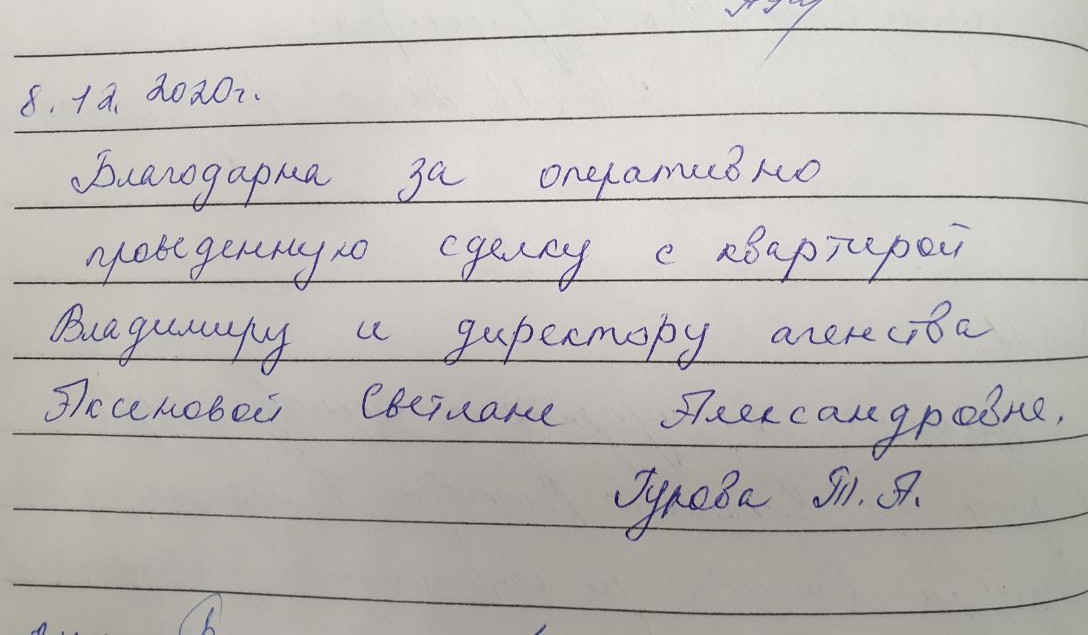 8.12.2020г.
Благодарна за оперативно
проведенную сделку с квартирой
Владимиру и директору агенства
Аксеновой Светлане Александровне.
Гурова Т.А.